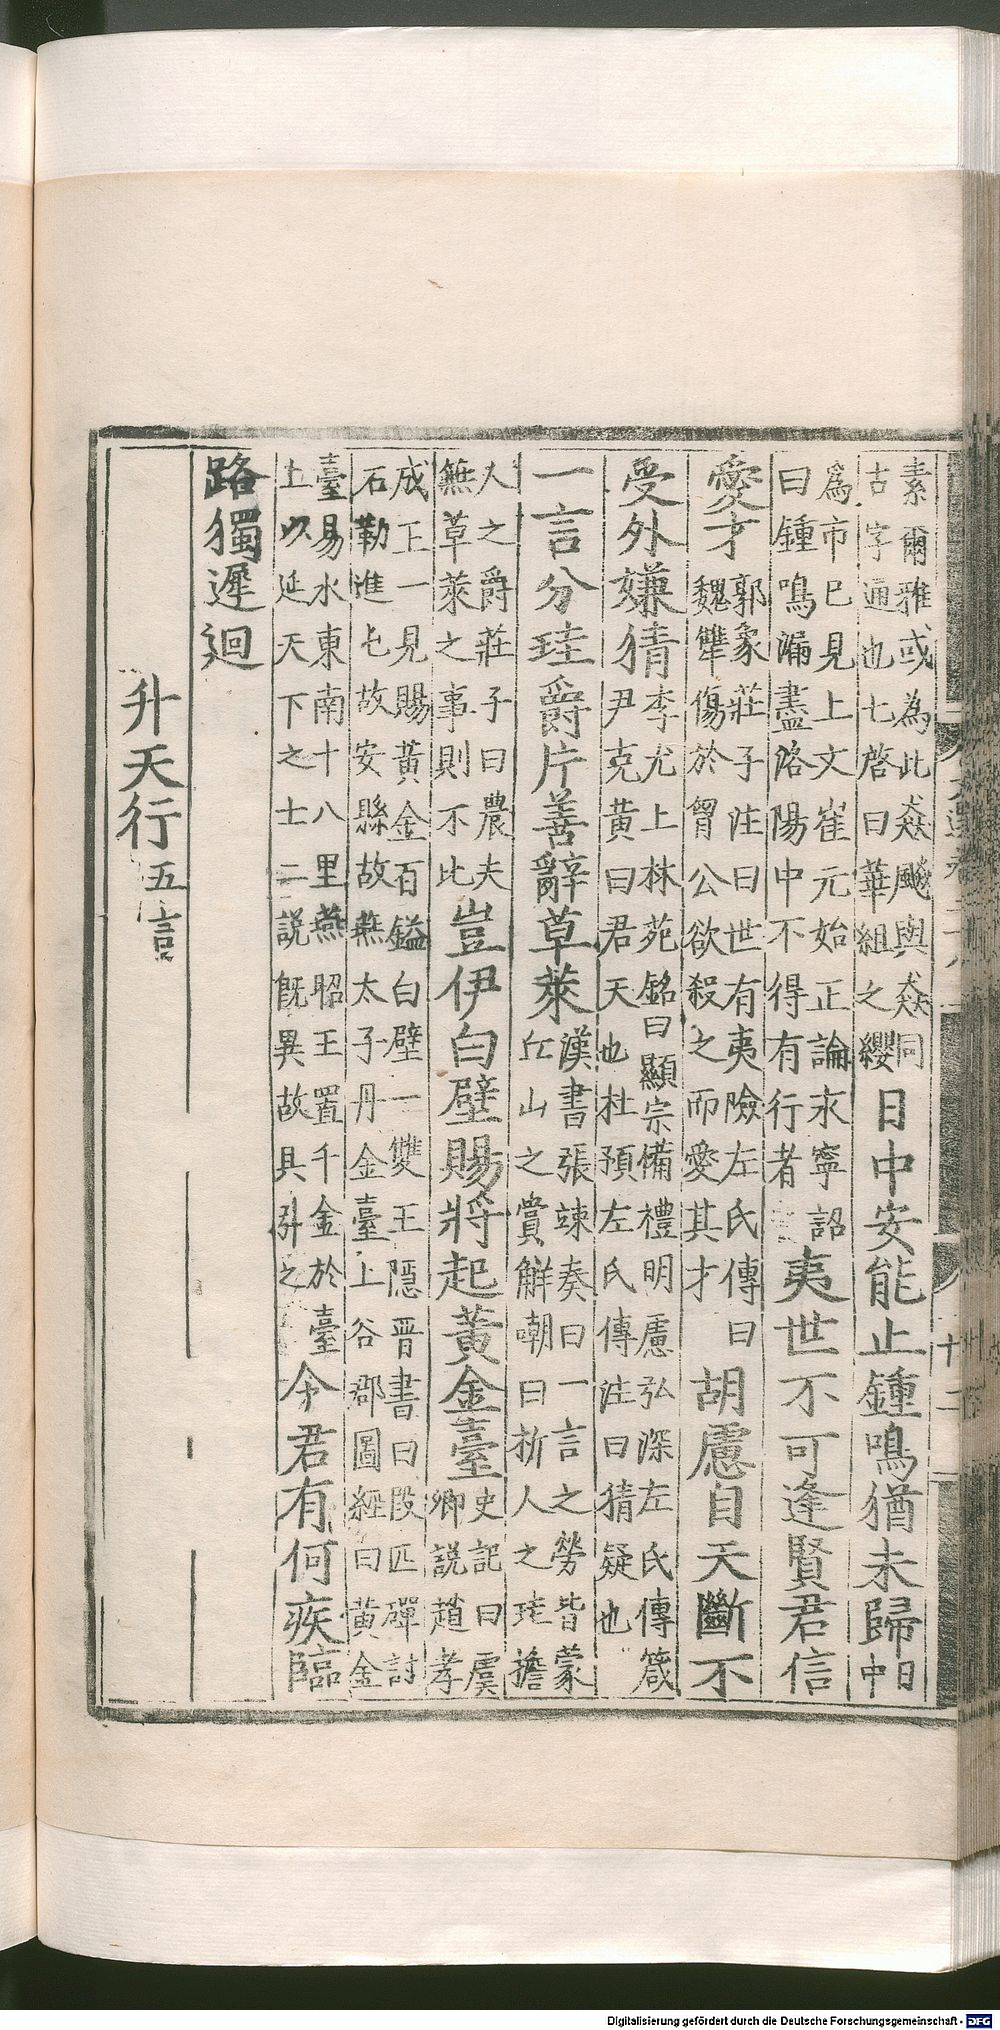 素爾雅或為此猋飈與猋同
古字通也七啓曰華組之纓
日中安能止鍾鳴猶未歸
日
中
為市已見上文崔元始正論永寧詔
曰鍾鳴漏盡洛陽中不得有行者
夷世不可逢賢君信
愛才
郭象莊子注曰世有夷險左氏傳曰
魏犨傷於胷公欲殺之而愛其才
胡慮自天斷不
受外嫌猜
李尤上林苑銘曰顯宗備禮明慮弘深左氏傳箴
尹克黃曰君天也杜預左氏傳注曰猜疑也
一言分珪爵片善辭草萊
漢書張竦奏曰一言之勞皆蒙
丘山之賞解嘲曰析人之珪擔
人之爵莊子曰農夫
無草萊之事則不比
豈伊白璧賜將起黃金臺
史記曰虞
卿說趙孝
成王一見賜黃金百鎰白璧一雙王隱晉書曰段匹磾討
石勒進屯故安縣故燕太子丹金臺上谷郡圖經曰黃金
臺易水東南十八里燕昭王置千金於臺
上以延天下之士二說旣異故具引之
今君有何疾臨
路獨遲迴
升天行五言
Digitalisierung gefördert durch die Deutsche Forschungsgemeinschaft - DFG